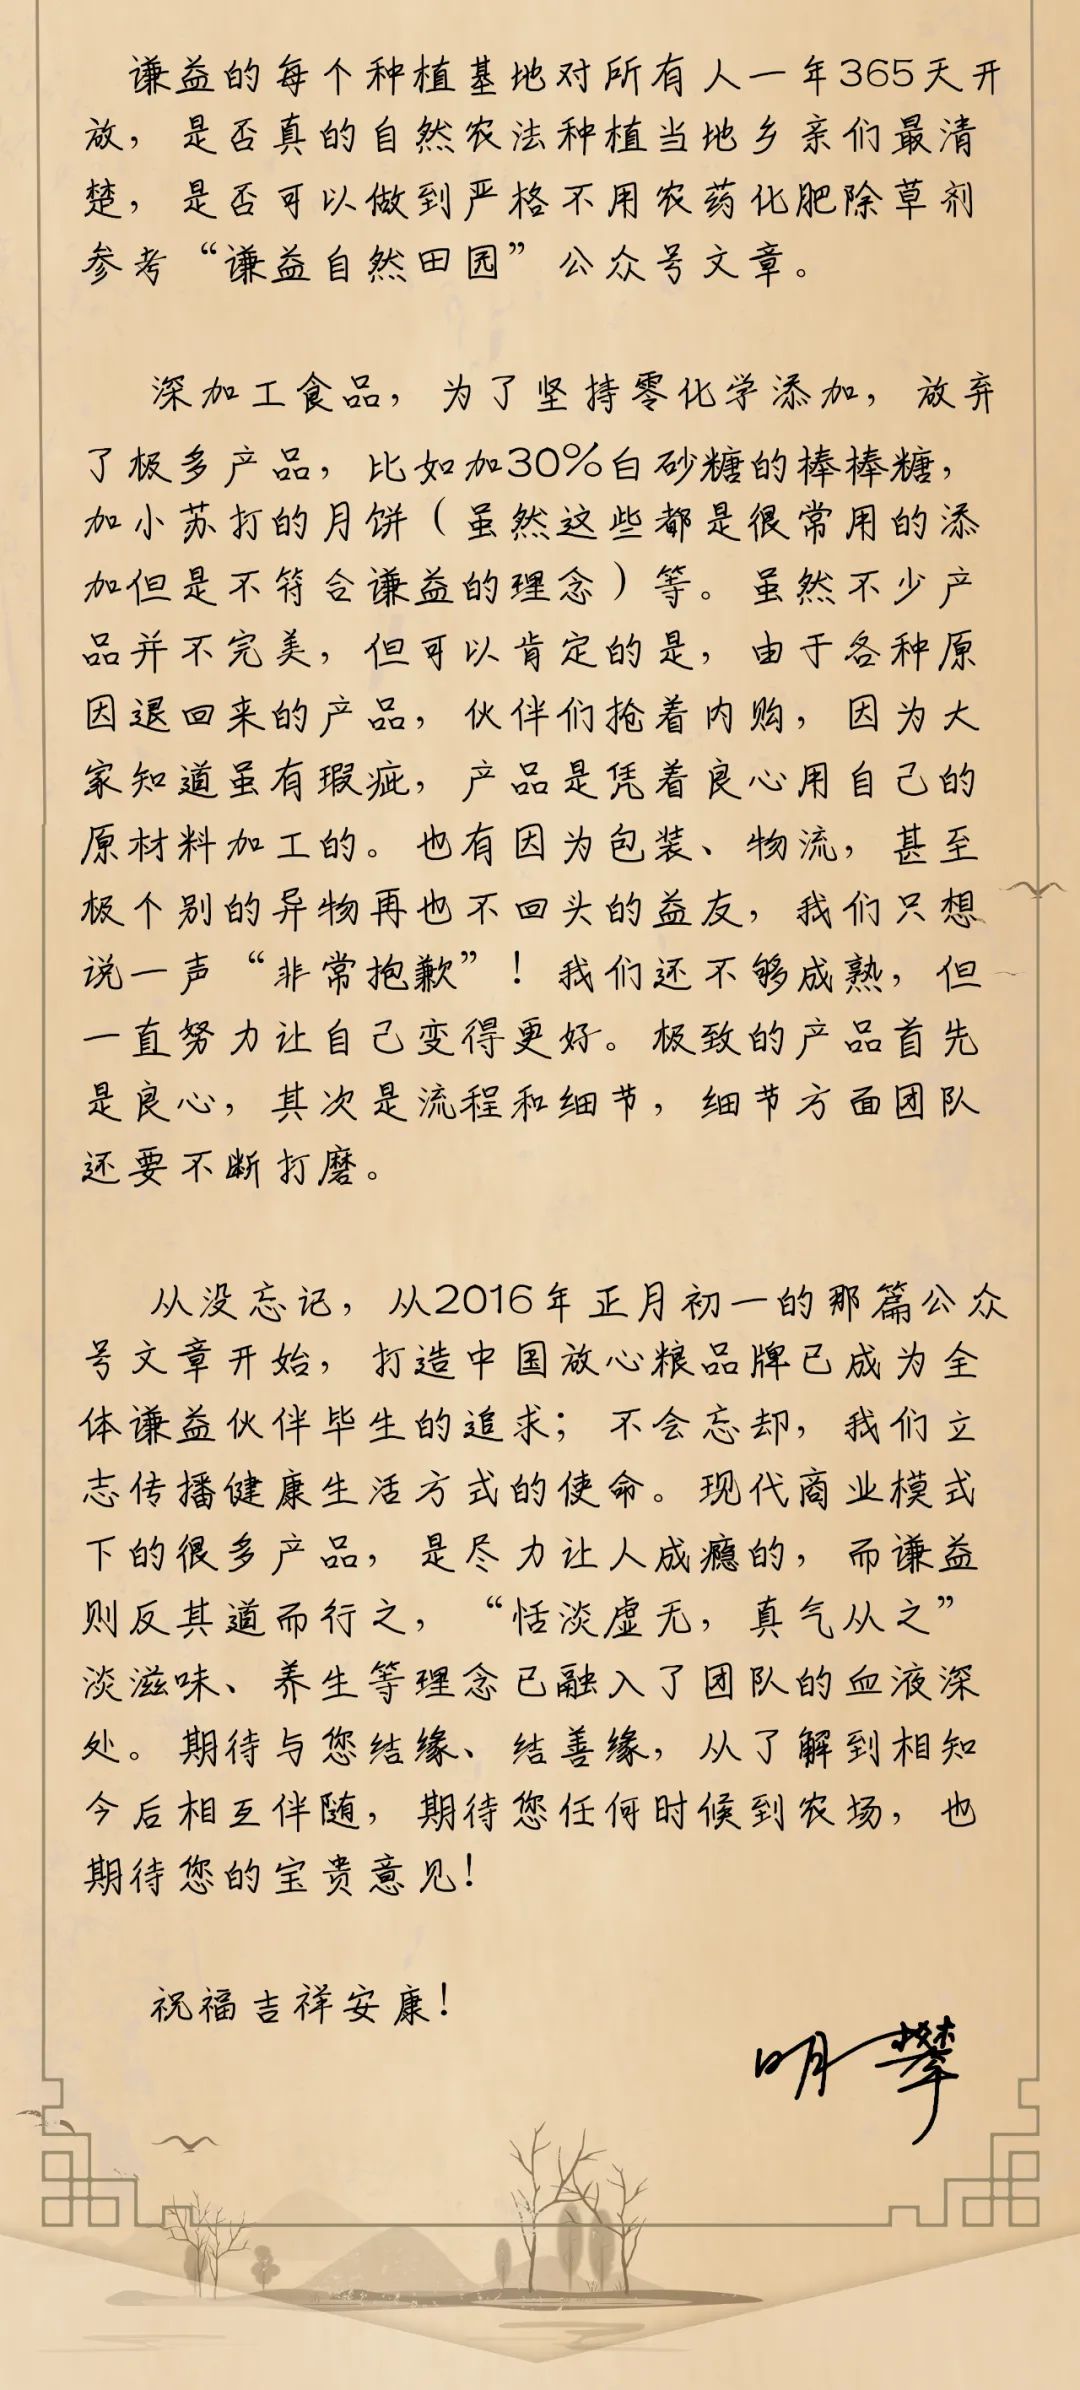 谦益的每个种植基地对所有人一年365天开
放，是否真的自然农法种植当地乡亲们最清
楚，是否可以做到严格不用农药化肥除草剂
参考“谦益自然田园”公众号文章。
深加工食品，为了坚持零化学添加，放弃
了极多产品，比如加30%白砂糖的棒棒糖，
加小苏打的月饼（虽然这些都是很常用的添
加但是不符合谦益的理念）等。虽然不少产
品并不完美，但可以肯定的是，由于各种原
因退回来的产品，伙伴们抢着内购，因为大
家知道虽有瑕疵，产品是凭着良心用自己的
原材料加工的。也有因为包装、物流，甚至
极个别的异物再也不回头的益友，我们只想
说一声“非常抱歉”！我们还不够成熟，但
一直努力让自己变得更好。极致的产品首先
是良心，其次是流程和细节，细节方面团队
还要不断打磨。
从没忘记，从2016年正月初一的那篇公众
号文章开始，打造中国放心粮品牌已成为全
体谦益伙伴毕生的追求；不会忘却，我们立
志传播健康生活方式的使命。现代商业模式
下的很多产品，是尽力让人成瘾的，而谦益
则反其道而行之，“恬淡虚无，真气从之”
淡滋味、养生等理念已融入了团队的血液深
处。期待与您结缘、结善缘，从了解到相知
今后相互伴随，期待您任何时候到农场，也
期待您的宝贵意见！
祝福吉祥安康！
明攀